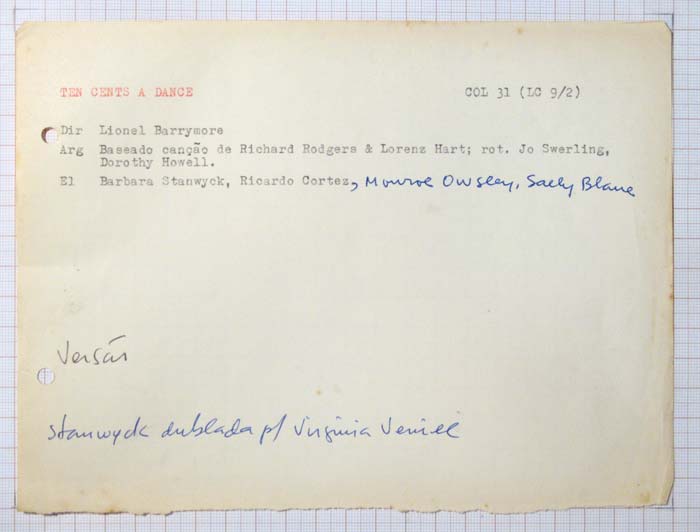 TEN CENTS A DANCE COL 31 (LC 9/2)
Dir Lionel Barrymore
Arg Baseado canção de Richard Rodgers & Lorenz Hart; rot. Jo Swerling,
Dorothy Howell.
El Barbara Stanwyck, Ricardo Cortez, Monroe Owsley, Sally Blane
stanwyck dublada p/ Virginia